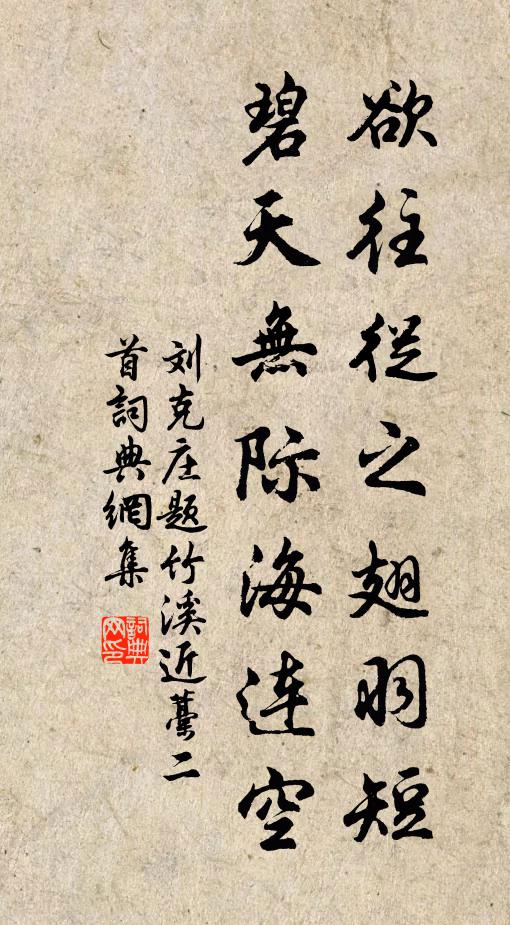 欲往從之翅羽短
碧天無际海連空
刘克庄题竹溪近藁二
首詞典網集
詞典网印